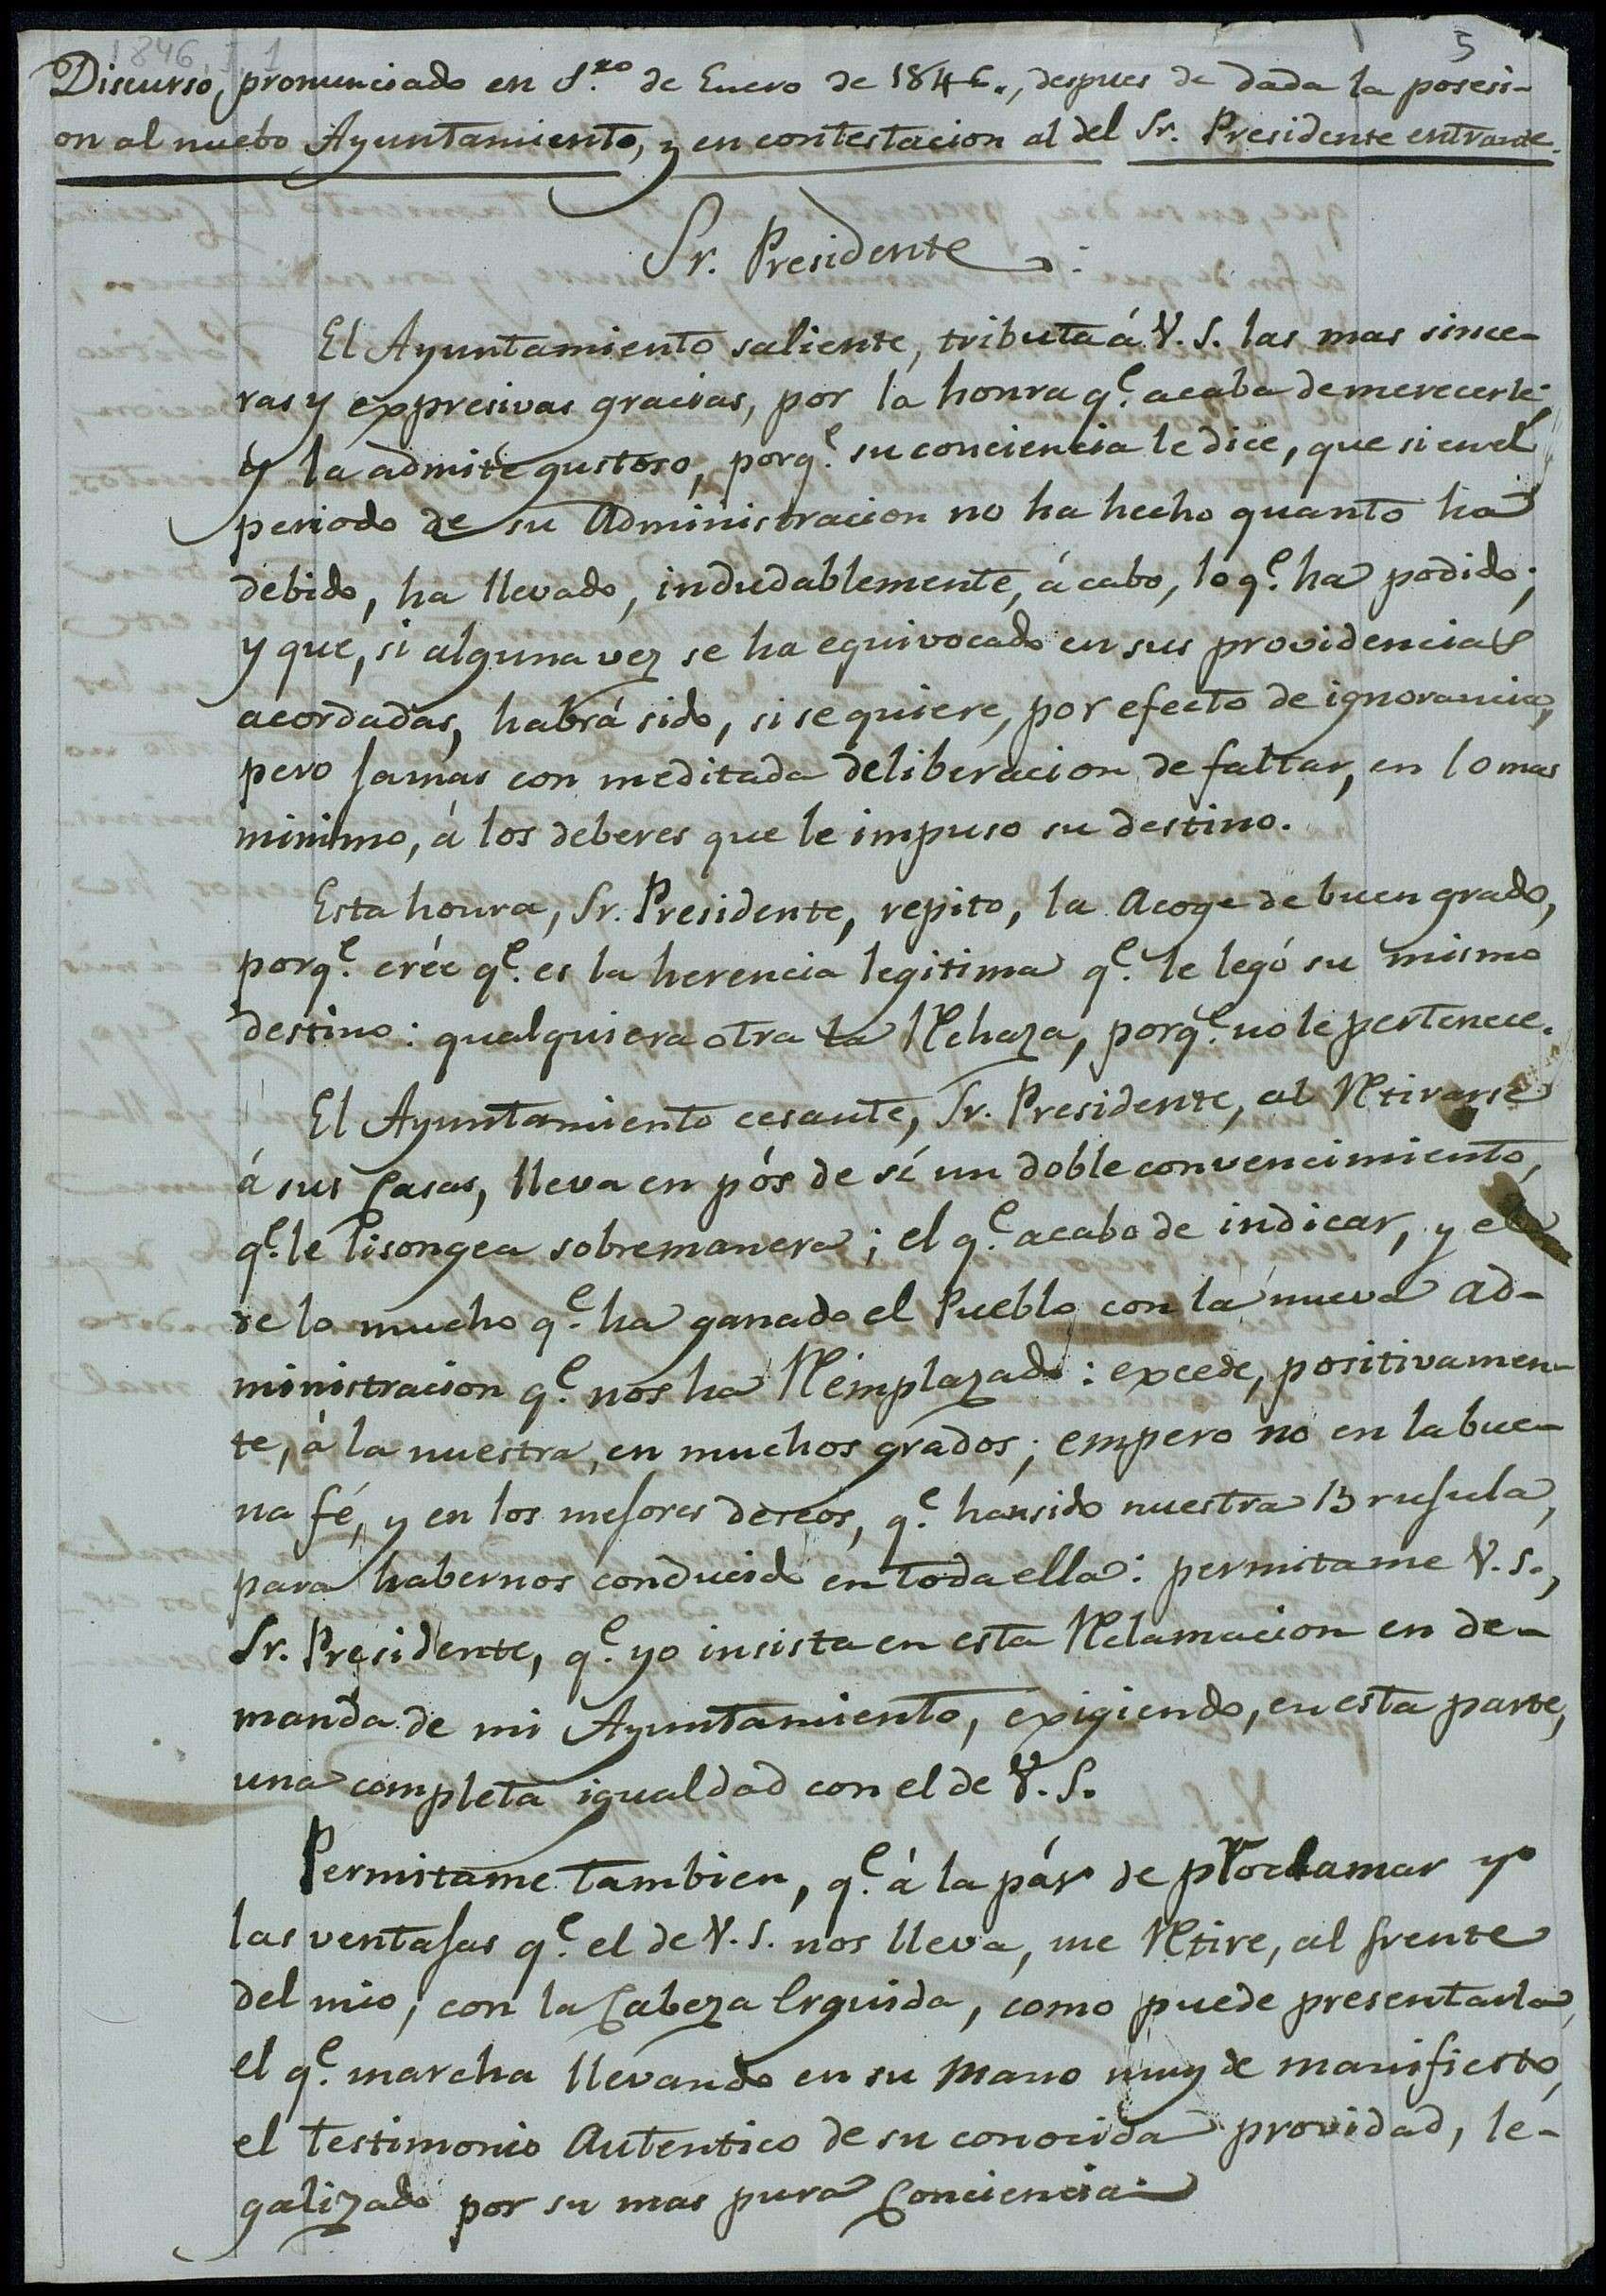 1846, I, 1
5
Discurso, pronunciado en 1.ro de Enero de 1846., despues de dada la posesi-
on al nuebo Ayuntamiento, y en contestacion al del Sr. Presidente entrante.
Sr. Presidente:
El Ayuntamiento saliente, tributa á V. S. las mas since-
ras y expresivas gracias, por la honra q.e acaba de merecerle;
y la admite gustoso, porq.e su conciencia le dice, que si en el
periodo de su Administracion no ha hecho quanto ha
debido, ha llevado, indudablemente, á cabo, lo q.e ha podido;
y que, si alguna vez se ha equivocado en sus providencias
acordadas, habrá sido, si se quiere, por efecto de ignorancia,
pero jamás con meditada deliberacion de faltar, en lo mas
minimo, á los deberes que le impuso su destino.
Esta honra, Sr. Presidente, repito, la Acoge de buen grado,
porq.e crée q.e es la herencia legitima q.e le legó su mismo
destino: qualquiera otra la Rehaza, porq.e no le pertenece.
El Ayuntamiento cesante, Sr. Presidente, al Retirarse
á sus Casas, lleva en pós de sí un doble convencimiento,
q.e le lisongea sobremanera; el q.e acabo de indicar, y el
de lo mucho q.e ha ganado el Pueblo con la nueva ad-
ministracion q.e nos ha Reemplazado: excede, positivamen-
te, á la nuestra, en muchos grados; empero no en la bue-
na fé, y en los mejores deseos, q.e han sido nuestra Brujula,
para habernos conducido en toda ella: permitame V. S.,
Sr. Presidente, q.e yo insista en esta Reclamacion en de-
manda de mi Ayuntamiento, exigiendo, en esta parte,
una completa igualdad con el de V. S.
Permitame tambien, q.e á la pár de proclamar yo
las ventajas q.e el de V. S. nos lleva, me Retire, al frente
del mio, con la Cabeza Erguida, como puede presentarla,
el q.e marcha llevando en su mano muy de manifiesto,
el testimonio Autentico de su conocida providad, le-
galizado por su mas pura Conciencia